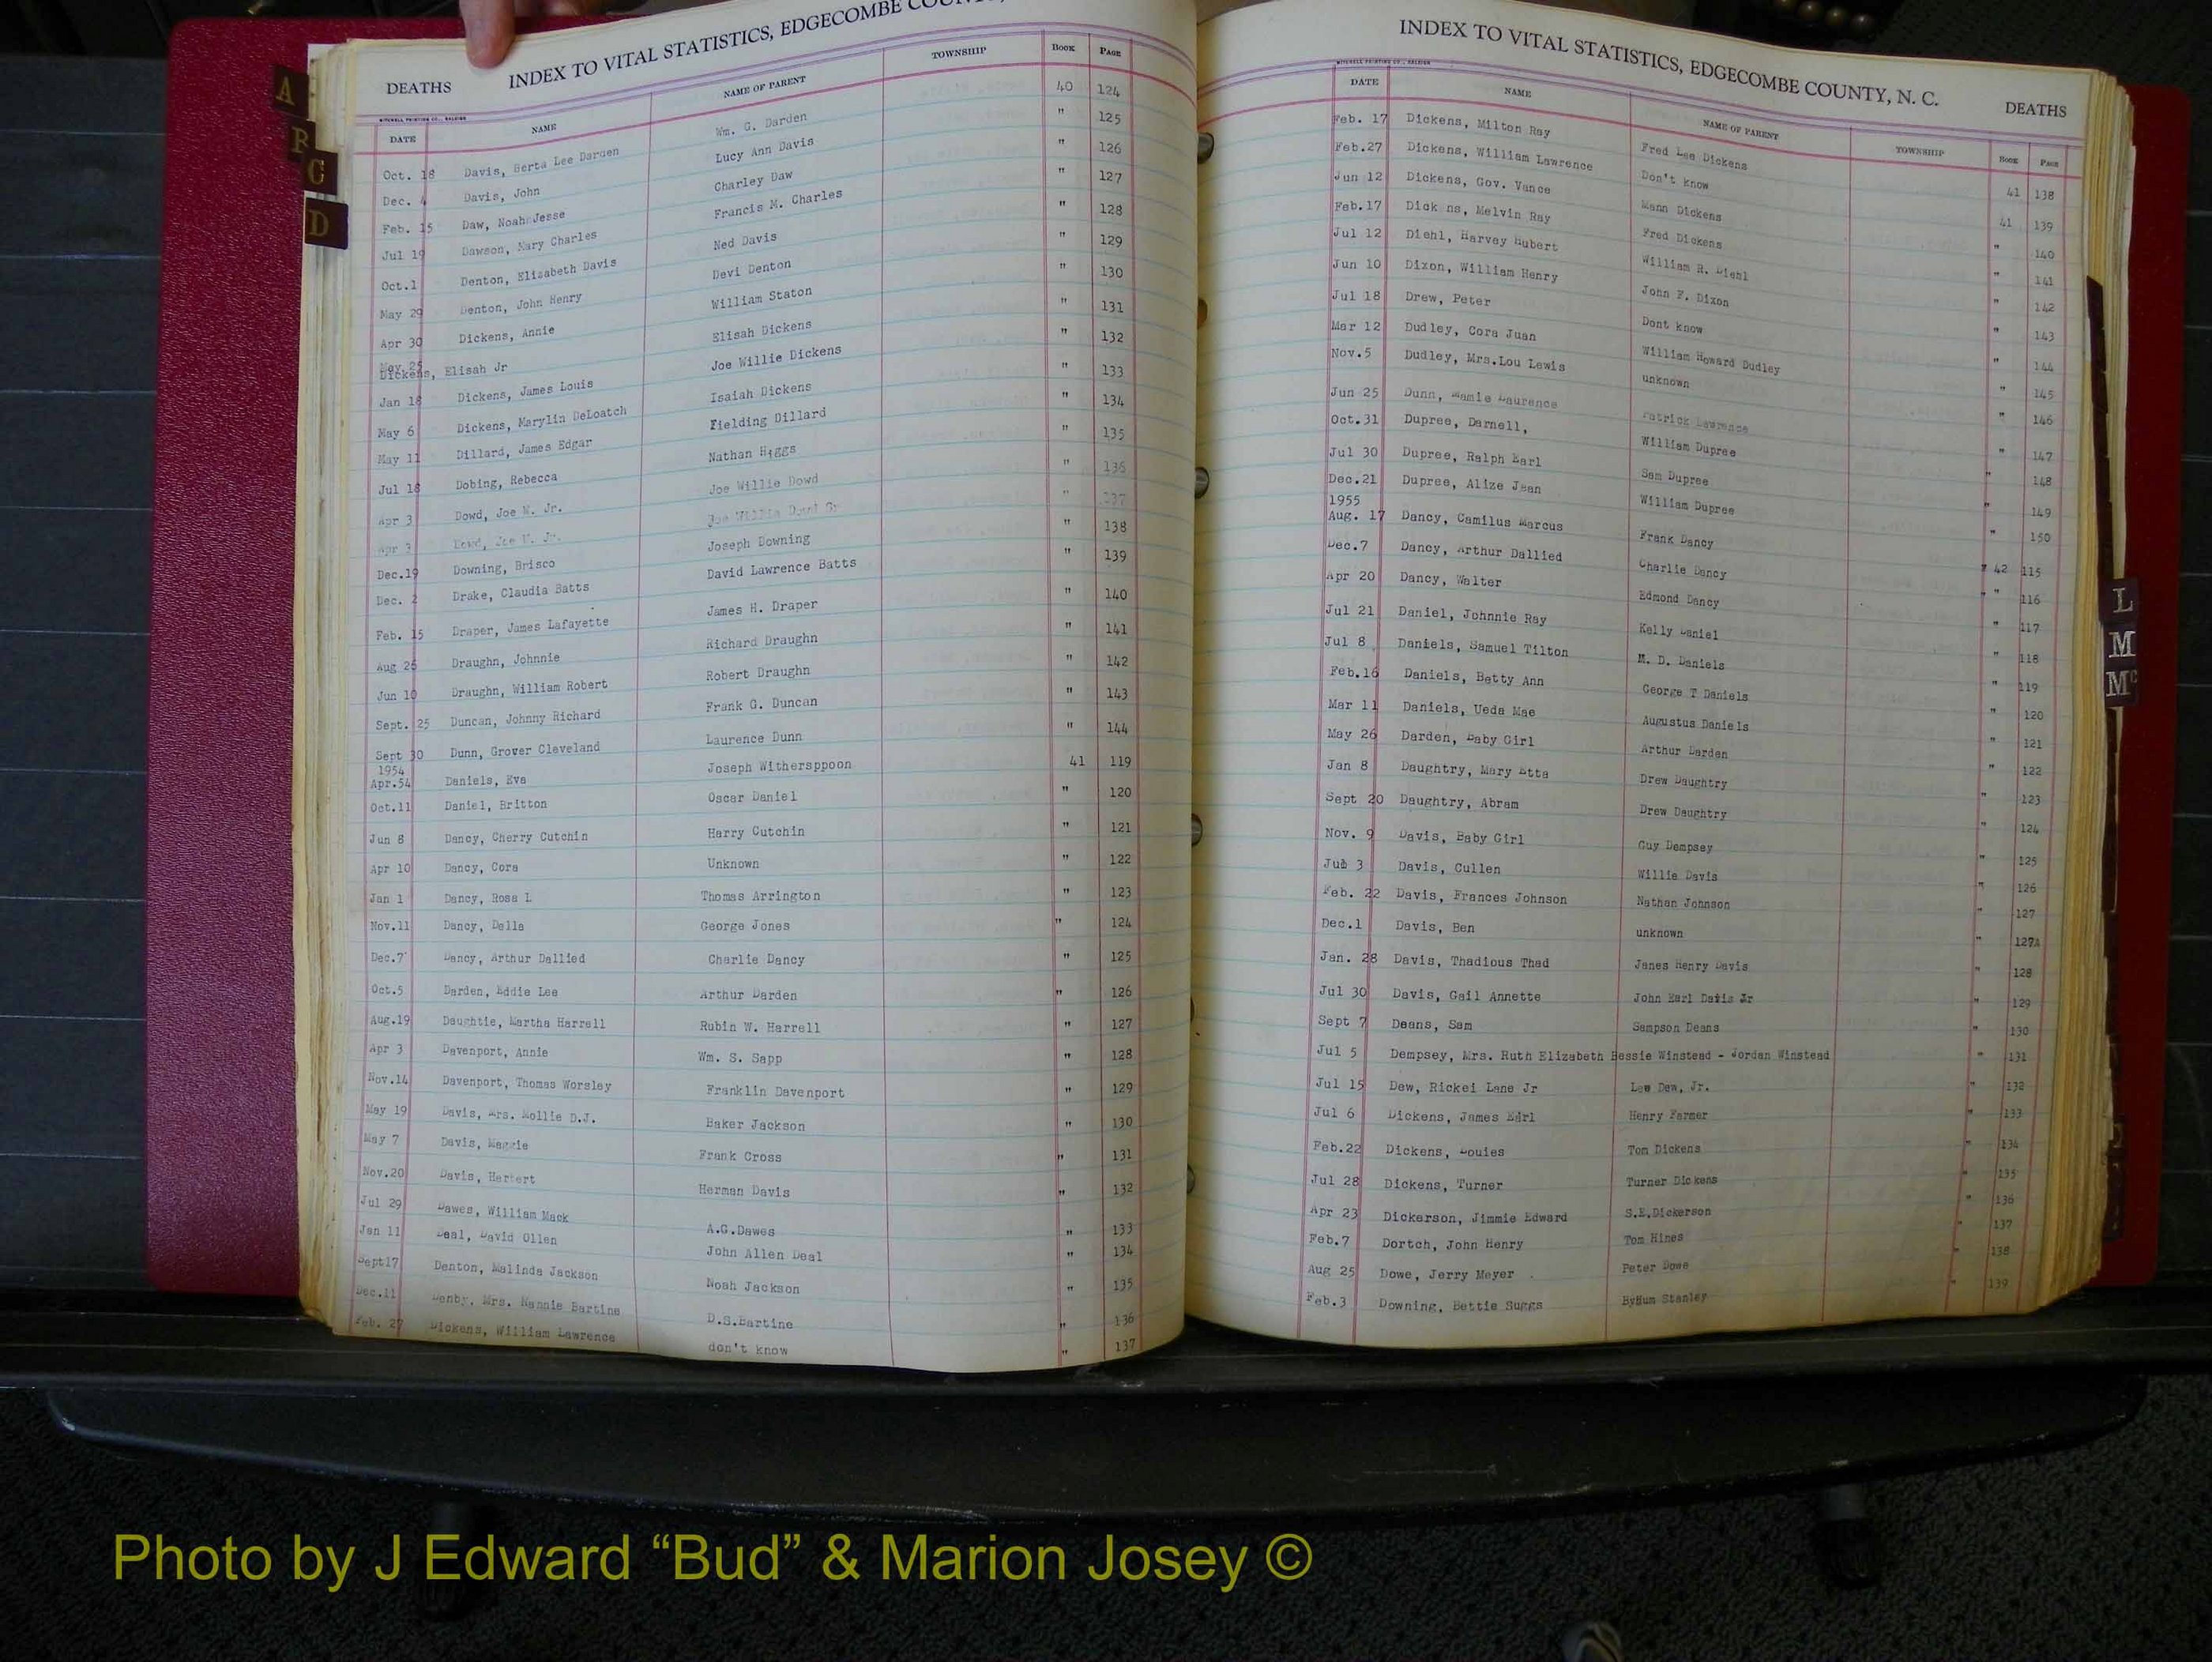 DEATHS INDEX TO VITAL STATISTICS, EDGECOMBE COUNTY,
MITCHELL PRINTING CO., RALEIGH
DATE NAME NAME OF PARENT TOWNSHIP BOOK PAGE
Oct. 18 Davis, Berta Lee Darden Wm. G. Darden 40 124
Dec. 4 Davis, John Lucy Ann Davis " 125
Feb. 15 Daw, Noah Jesse Charley Daw " 126
Jul 19 Dawson, Mary Charles Francis M. Charles " 127
Oct.1 Denton, Elizabeth Davis Ned Davis " 128
May 29 Denton, John Henry Devi Denton " 129
Apr 30 Dickens, Annie William Staton " 130
May 25 Dickens, Elisah Jr Elisah Dickens " 131
Jan 18 Dickens, James Louis Joe Willie Dickens " 132
May 6 Dickens, Marylin DeLoatch Isaiah Dickens " 133
May 11 Dillard, James Edgar Fielding Dillard " 134
Jul 18 Dobing, Rebecca Nathan Higgs " 135
Apr 3 Dowd, Joe W. Jr. Joe Willie Dowd " 136
Apr 3 Dowd, Joe W. Jr. Joe Willie Dowd Sr " 137
Dec.19 Downing, Brisco Joseph Downing " 138
Dec. 2 Drake, Claudia Batts David Lawrence Batts " 139
Feb. 15 Draper, James Lafayette James H. Draper " 140
Aug 26 Draughn, Johnnie Richard Draughn " 141
Jun 10 Draughn, William Robert Robert Draughn " 142
Sept. 25 Duncan, Johnny Richard Frank G. Duncan " 143
Sept 30 Dunn, Grover Cleveland Laurence Dunn " 144
1954
Apr.54 Daniels, Eva Joseph Witherspoon 41 119
Oct.11 Daniel, Britton Oscar Daniel " 120
Jun 8 Dancy, Cherry Cutchin Harry Cutchin " 121
Apr 10 Dancy, Cora Unknown " 122
Jan 1 Dancy, Rosa L Thomas Arrington " 123
Nov.11 Dancy, Della George Jones " 124
Dec.7 Dancy, Arthur Dallied Charlie Dancy " 125
Oct.5 Darden, Eddie Lee Arthur Darden " 126
Aug.19 Daughtie, Martha Harrell Rubin W. Harrell " 127
Apr 3 Davenport, Annie Wm. S. Sapp " 128
Nov.14 Davenport, Thomas Worsley Franklin Davenport " 129
May 19 Davis, Mrs. Mollie D.J. Baker Jackson " 130
May 7 Davis, Maggie Frank Cross " 131
Nov.20 Davis, Herbert Herman Davis " 132
Jul 29 Dawes, William Mack A.G.Dawes " 133
Jan 11 Deal, David Ollen John Allen Deal " 134
Sept17 Denton, Malinda Jackson Noah Jackson " 135
Dec.11 Denby, Mrs. Nannie Bartine D.S.Bartine " 136
Feb. 27 Dickens, William Lawrence don't know " 137
INDEX TO VITAL STATISTICS, EDGECOMBE COUNTY, N. C. DEATHS
MITCHELL PRINTING CO., RALEIGH
DATE NAME NAME OF PARENT TOWNSHIP BOOK PAGE
Feb. 17 Dickens, Milton Ray Fred Lee Dickens 41 138
Feb.27 Dickens, William Lawrence Don't know 41 139
Jun 12 Dickens, Gov. Vance Mann Dickens " 140
Feb.17 Dick ns, Melvin Ray Fred Dickens " 141
Jul 12 Diehl, Harvey Hubert William R. Diehl " 142
Jun 10 Dixon, William Henry John F. Dixon " 143
Jul 18 Drew, Peter Dont know " 144
Mar 12 Dudley, Cora Juan William Howard Dudley " 145
Nov.5 Dudley, Mrs.Lou Lewis unknown " 146
Jun 25 Dunn, Mamie Laurence Patrick Lawrence " 147
Oct.31 Dupree, Darnell, William Dupree " 148
Jul 30 Dupree, Ralph Earl Sam Dupree " 149
Dec.21 Dupree, Alize Jean William Dupree " 150
1955
Aug. 17 Dancy, Camilus Marcus Frank Dancy " 42 115
Dec.7 Dancy, Arthur Dallied Charlie Dancy " " 116
Apr 20 Dancy, Walter Edmond Dancy " 117
Jul 21 Daniel, Johnnie Ray Kelly Daniel " 118
Jul 8 Daniels, Samuel Tilton M. D. Daniels " 119
Feb.16 Daniels, Betty Ann George T Daniels " 120
Mar 11 Daniels, Ueda Mae Augustus Daniels " 121
May 26 Darden, Baby Girl Arthur Darden " 122
Jan 8 Daughtry, Mary Etta Drew Daughtry " 123
Sept 20 Daughtry, Abram Drew Daughtry " 124
Nov. 9 Davis, Baby Girl Guy Dempsey " 125
Jun 3 Davis, Cullen Willie Davis " 126
Feb. 22 Davis, Frances Johnson Nathan Johnson " 127
Dec.1 Davis, Ben unknown " 127A
Jan. 28 Davis, Thadious Thad Janes Henry Davis " 128
Jul 30 Davis, Gail Annette John Earl Davis Jr " 129
Sept 7 Deans, Sam Sampson Deans " 130
Jul 5 Dempsey, Mrs. Ruth Elizabeth Bessie Winstead - Jordan Winstead " 131
Jul 15 Dew, Rickei Lane Jr Lee Dew, Jr. " 132
Jul 6 Dickens, James Earl Henry Farmer " 133
Feb.22 Dickens, Louies Tom Dickens " 134
Jul 28 Dickens, Turner Turner Dickens " 135
Apr 23 Dickerson, Jimmie Edward S.E.Dickerson " 136
Feb.7 Dortch, John Henry Tom Hines " 137
Aug 25 Dowe, Jerry Meyer Peter Dowe " 138
Feb.3 Downing, Bettie Suggs Byhum Stanley " 139
A
B
C
D
L
M
Mc
Photo by J Edward “Bud” & Marion Josey ©